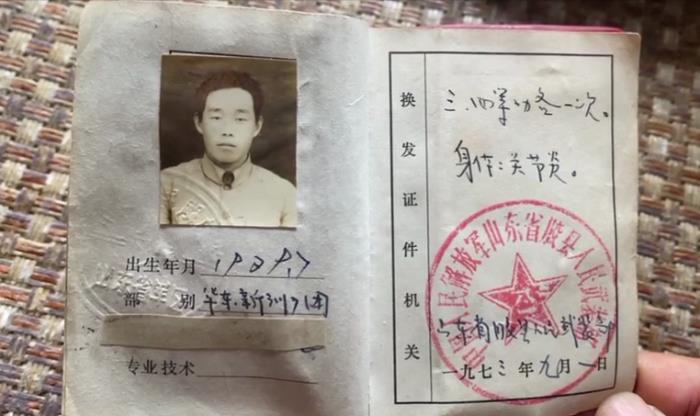 出生年月 1929.7
部 别 华东新训八团
专业技术
换发证件机关
三.四等功各一次。
身体:关节炎。
中国人民解放军山东省胶县人民武装部
山东省胶县人民武装部
一九七三年九月一日